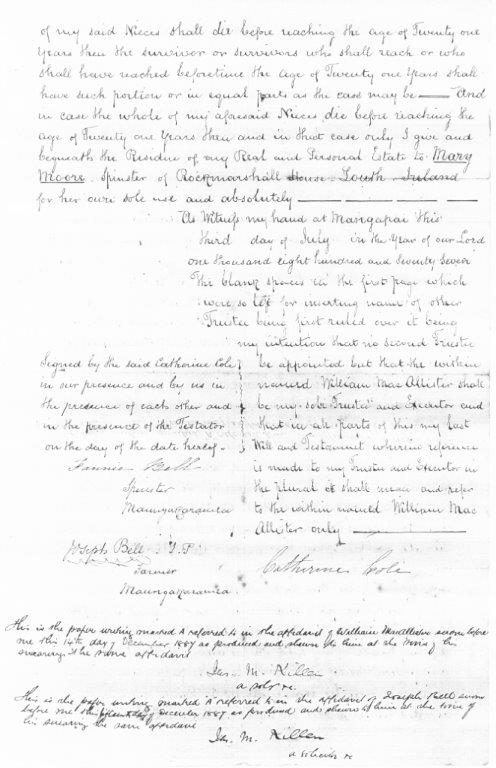 of my said Nieces shall die before reaching the age of Twenty one
Years then the survivor or survivors who shall reach or who
shall have reached beforetime the age of Twenty one Years shall
have such portion or in equal parts as the case may be — And
in case the whole of my aforesaid Nieces die before reaching the
age of Twenty one Years then and in that case only I give and
bequeath the Residue of my Real and Personal Estate to Mary
Moore Spinster of Rockmarshall House Louth Ireland
for her own sole use and absolutely
As Witness my hand at Mangapai this
third day of July in the Year of our Lord
one thousand eight hundred and Seventy Seven
The blank spaces in the first page which
were so left for inserting name of other
Trustee being first ruled over it being
my intention that no second Trustee
be appointed but that the within
named William Mac Allister shall
be my sole Trustee and Executor and
that in all parts of this my last
Will and Testament wherein reference
is made to my Trustee and Executor in
the plural it shall mean and refer
to the within named William Mac
Allister only
Signed by the said Catherine Cole
in our presence and by us in
the presence of each other and
in the presence of the Testator
on the day of the date hereof.
Fannie Bell
Spinster
Maungakaramea
Joseph Bell J.P.
Farmer
Maungakaramea
Catherine Cole
This is the paper writing marked A referred to in the affidavit of William MacAllister sworn before
me this 14th day of December 1887 as produced and shewn to him at the time of his
swearing the same affidavit
Jas. M. Killen
a solr
This is the paper writing marked A referred to in the affidavit of Joseph Bell sworn
before me this day of December 1887 as produced and shewn to him at the time of
his swearing the same affidavit
Jas. M. Killen
a solicitor